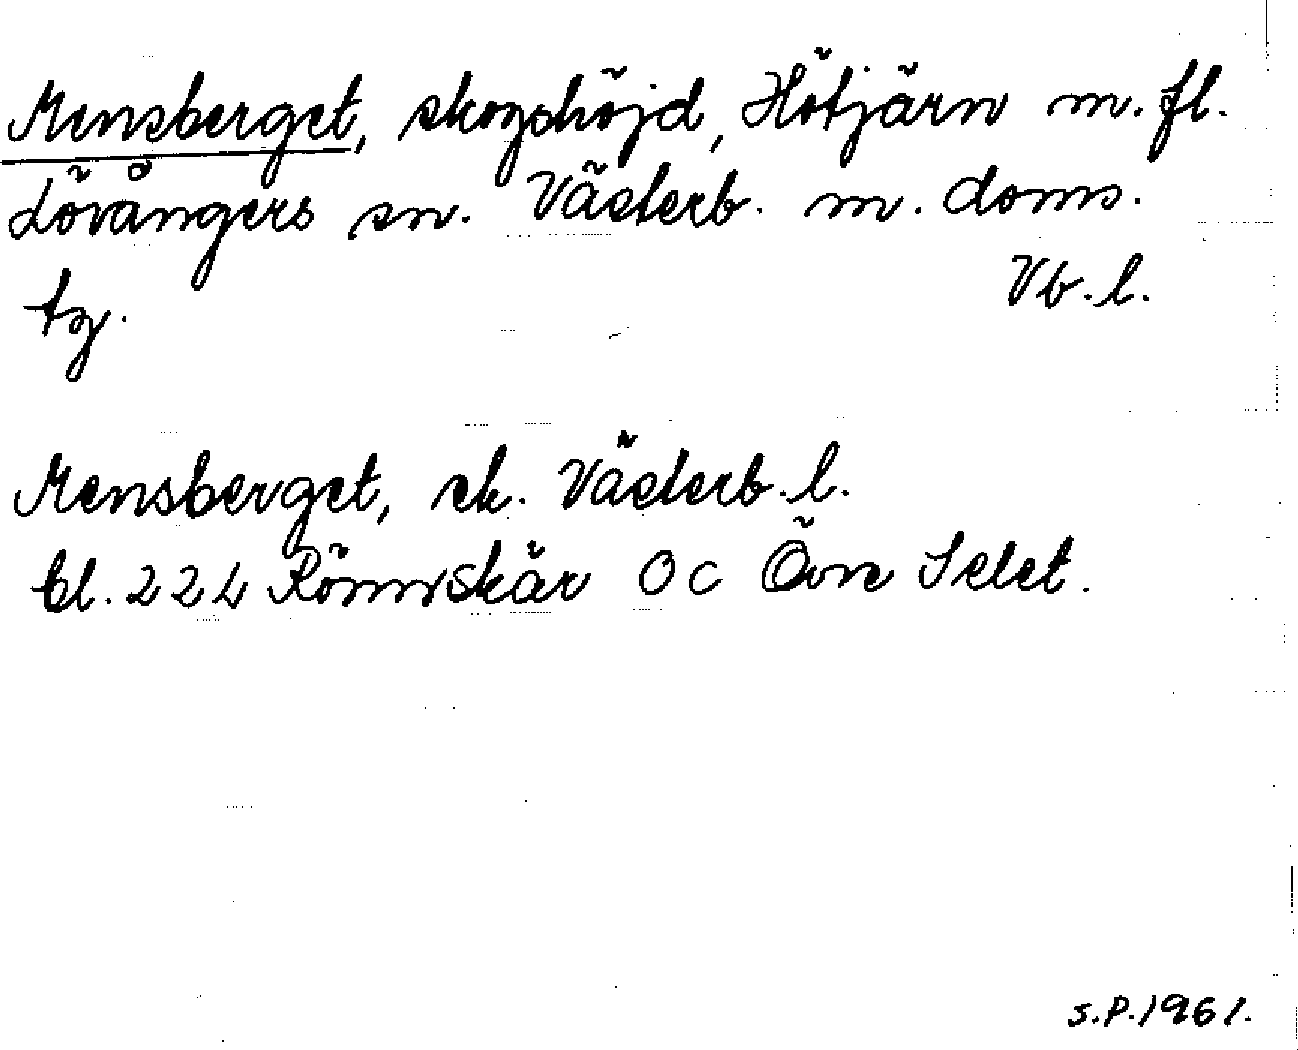 Mensberget, skogshöjd, Hötjärn m.fl.
Lövångers sn. Västerb. m. doms.
tg. Vb.l.
Mensberget, ek. Västerb.l.
bl. 22L Rönnskär OC Övre Selet.
S.P.1961.